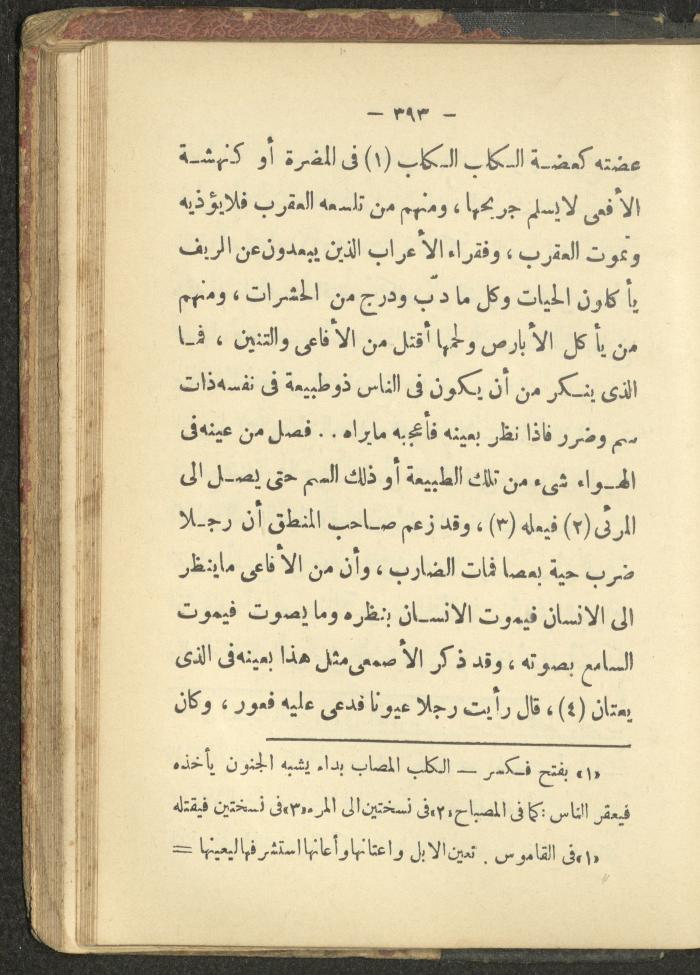 — ٣٩٣ —
عضته كعضة الكلب الكلب (١) فى المضرة أو كنهشة
الأفعى لا يسلم جريحها ، ومنهم من تلسعه العقرب فلا يؤذيه
وتموت العقرب ، وفقراء الأعراب الذين يبعدون عن الريف
يأكلون الحيات وكل ما دبّ ودرج من الحشرات ، ومنهم
من يأكل الأبارص ولحمها أقتل من الأفاعى والتنين ، فما
الذى ينكر من أن يكون فى الناس ذو طبيعة فى نفسه ذات
سم وضرر فاذا نظر بعينه فأعجبه ما يراه . . فصل من عينه فى
الهواء شىء من تلك الطبيعة أو ذلك السم حتى يصل الى
المرئى (٢) فيعله (٣) ، وقد زعم صاحب المنطق أن رجلا
ضرب حية بعصا فمات الضارب ، وأن من الأفاعى ما ينظر
الى الانسان فيموت الانسان بنظره وما يصوت فيموت
السامع بصوته ، وقد ذكر الأصمعى مثل هذا بعينه فى الذى
يعتان (٤) ، قال رأيت رجلا عيونا فدعى عليه فعور ، وكان
«١» بفتح فكسر — الكلب المصاب بداء يشبه الجنون يأخذه
فيعقر الناس : كما فى المصباح «٢» فى نسختين الى المرء «٣» فى نسختين فيقتله
«١» فى القاموس . تعين الابل واعتانها وأعانها استشرفها ليعينها =